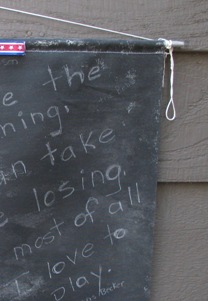 the
e
ning.
n take
losing.
most of all
I love to
play.